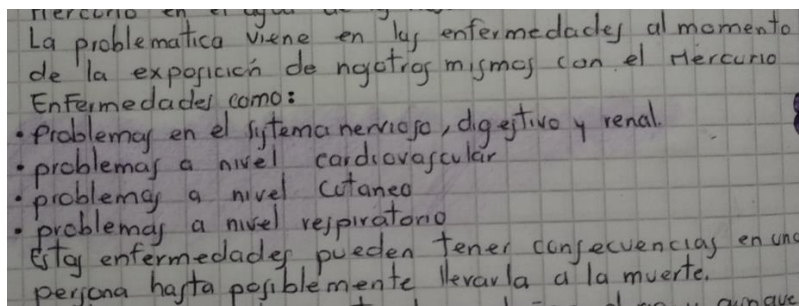 Mercurio en el agua de
La problematica viene en las enfermedades al momento
de la exposición de nosotros mismos con el Mercurio
Enfermedades como:
• Problemas en el sistema nervioso, digestivo y renal.
• problemas a nivel cardiovascular
• problemas a nivel cutaneo
• problemas a nivel respiratorio
Estas enfermedades pueden tener consecuencias en una
persona hasta posiblemente llevarla a la muerte.
aunque